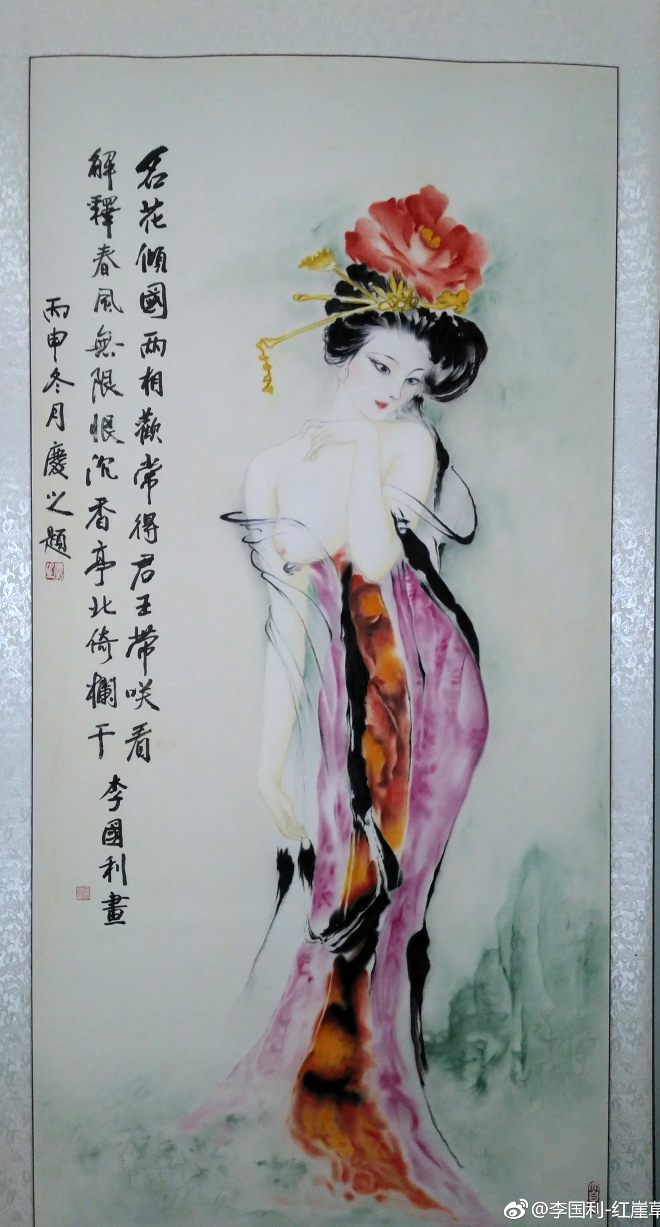 名花傾國兩相歡常得君王帶咲看
解釋春風無限恨沉香亭北倚欄干
丙申冬月慶之題
李國利畫
@李国利-红崖草